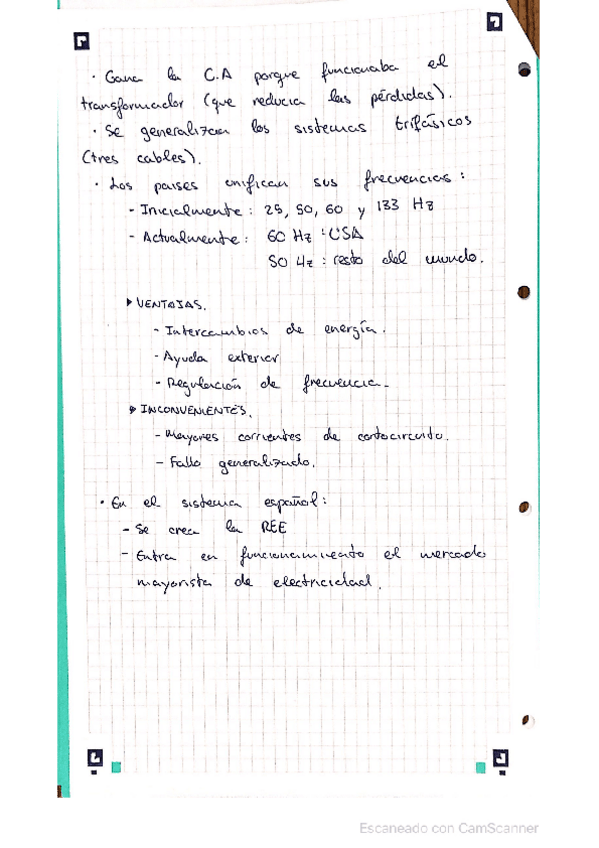 · Gana la C.A porque funcionaba el
transformador (que reducia las pérdidas).
· Se generalizan los sistemas trifásicos
(tres cables).
· Los paises unifican sus frecuencias:
- Inicialmente: 25, 50, 60 y 133 Hz
- Actualmente: 60 Hz : USA
50 Hz : resto del mundo.
▸ VENTAJAS.
- Intercambios de energía.
- Ayuda exterior
- Regulación de frecuencia.
▸ INCONVENIENTES.
- Mayores corrientes de cortocircuito.
- Fallo generalizado.
· En el sistema español:
- Se crea la REE
- Entra en funcionamiento el mercado
mayorista de electricidad.
Escaneado con CamScanner